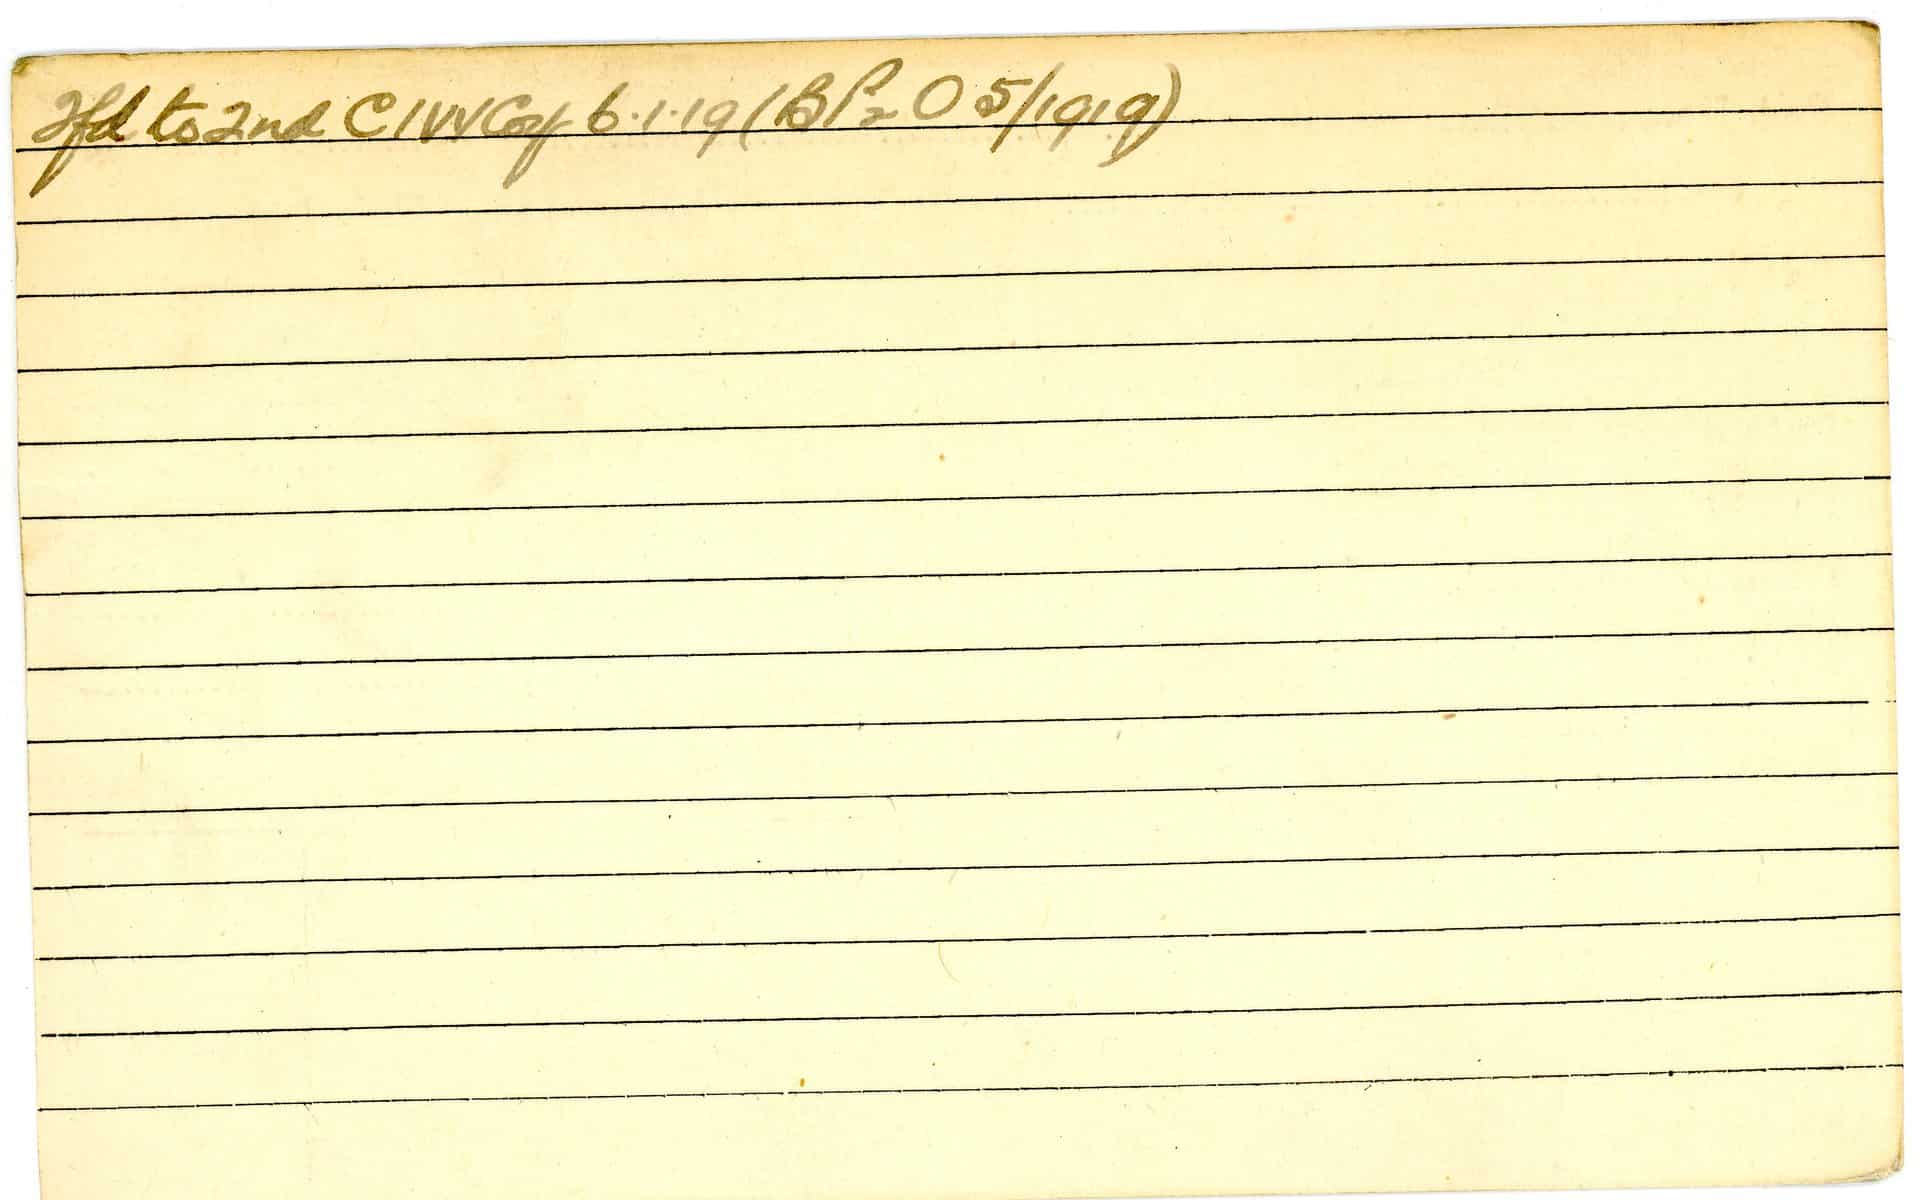 Tfd to 2nd C I W Coy 6.1.19 (B P2 O 5/1919)